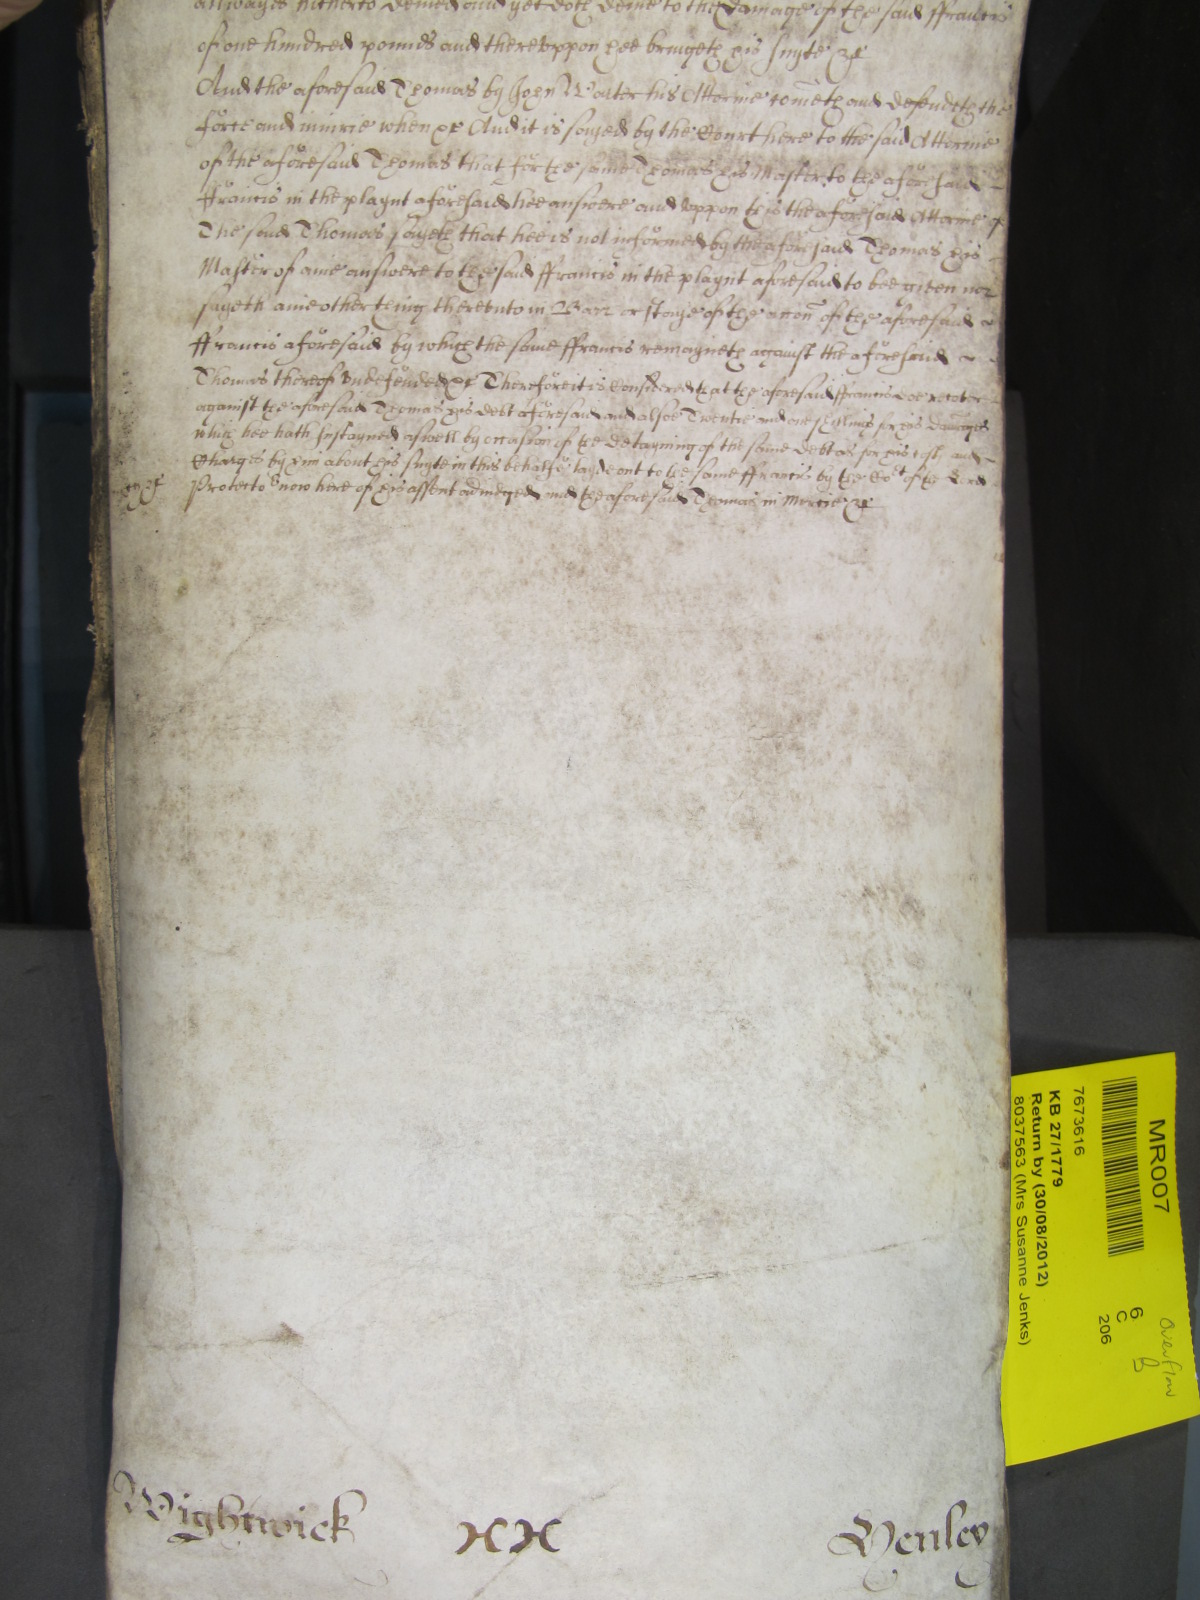 allwayes hitherto denied and yet doth denie to the damage of the said ffrancis
of one hundred pounds and therevppon hee bringeth his suyte &c
And the aforesaid Thomas by John Walter his Attornie cometh and defendeth the
force and iniurie when &c And it is sayed by the Court here to the said Attornie
of the aforesaid Thomas that for the same Thomas his Master to the aforesaid
ffrancis in the playnt aforesaid hee answere and vppon this the aforesaid Attornie of
The said Thomas sayeth that hee is not informed by the aforesaid Thomas his
Master of anie answere to the said ffrancis in the playnt aforesaid to bee given nor
sayeth anie other thing therevnto in Barr or stay of the accon of the aforesaid
ffrancis aforesaid by which the same ffrancis remayneth against the aforesaid
Thomas thereof vndefended &c Therefore it is Considered that the aforesaid ffrancis doe recover
against the aforesaid Thomas his debt aforesaid and alsoe Twentie and one shillings for his damages
which hee hath sustayned aswell by occasion of the detayning of the same debt as for his costs and
Charges by him about his suyte in this behalfe layde out to the same ffrancis by the Cot of the Lord
Protector now here of his assent adiudged and the aforesaid Thomas in Mercie &c
Wightwick XX Henley
MR007
7673616
KB 27/1779
Return by (30/08/2012)
8037563 (Mrs Susanne Jenks)
6
C
206
overflow
B